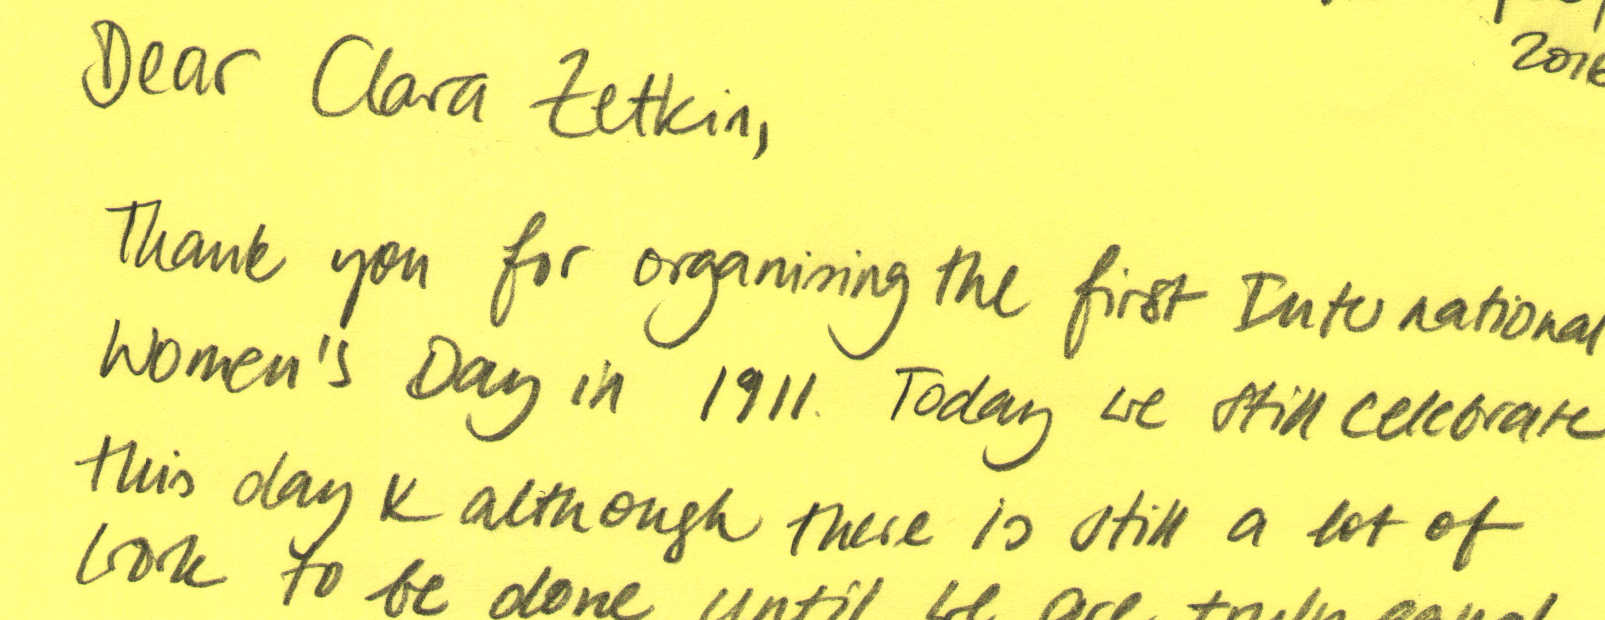 2016
Dear Clara Zetkin,
Thank you for organising the first International
Women's Day in 1911. Today we still celebrate
this day & although there is still a lot of
work to be done until we are truly equal